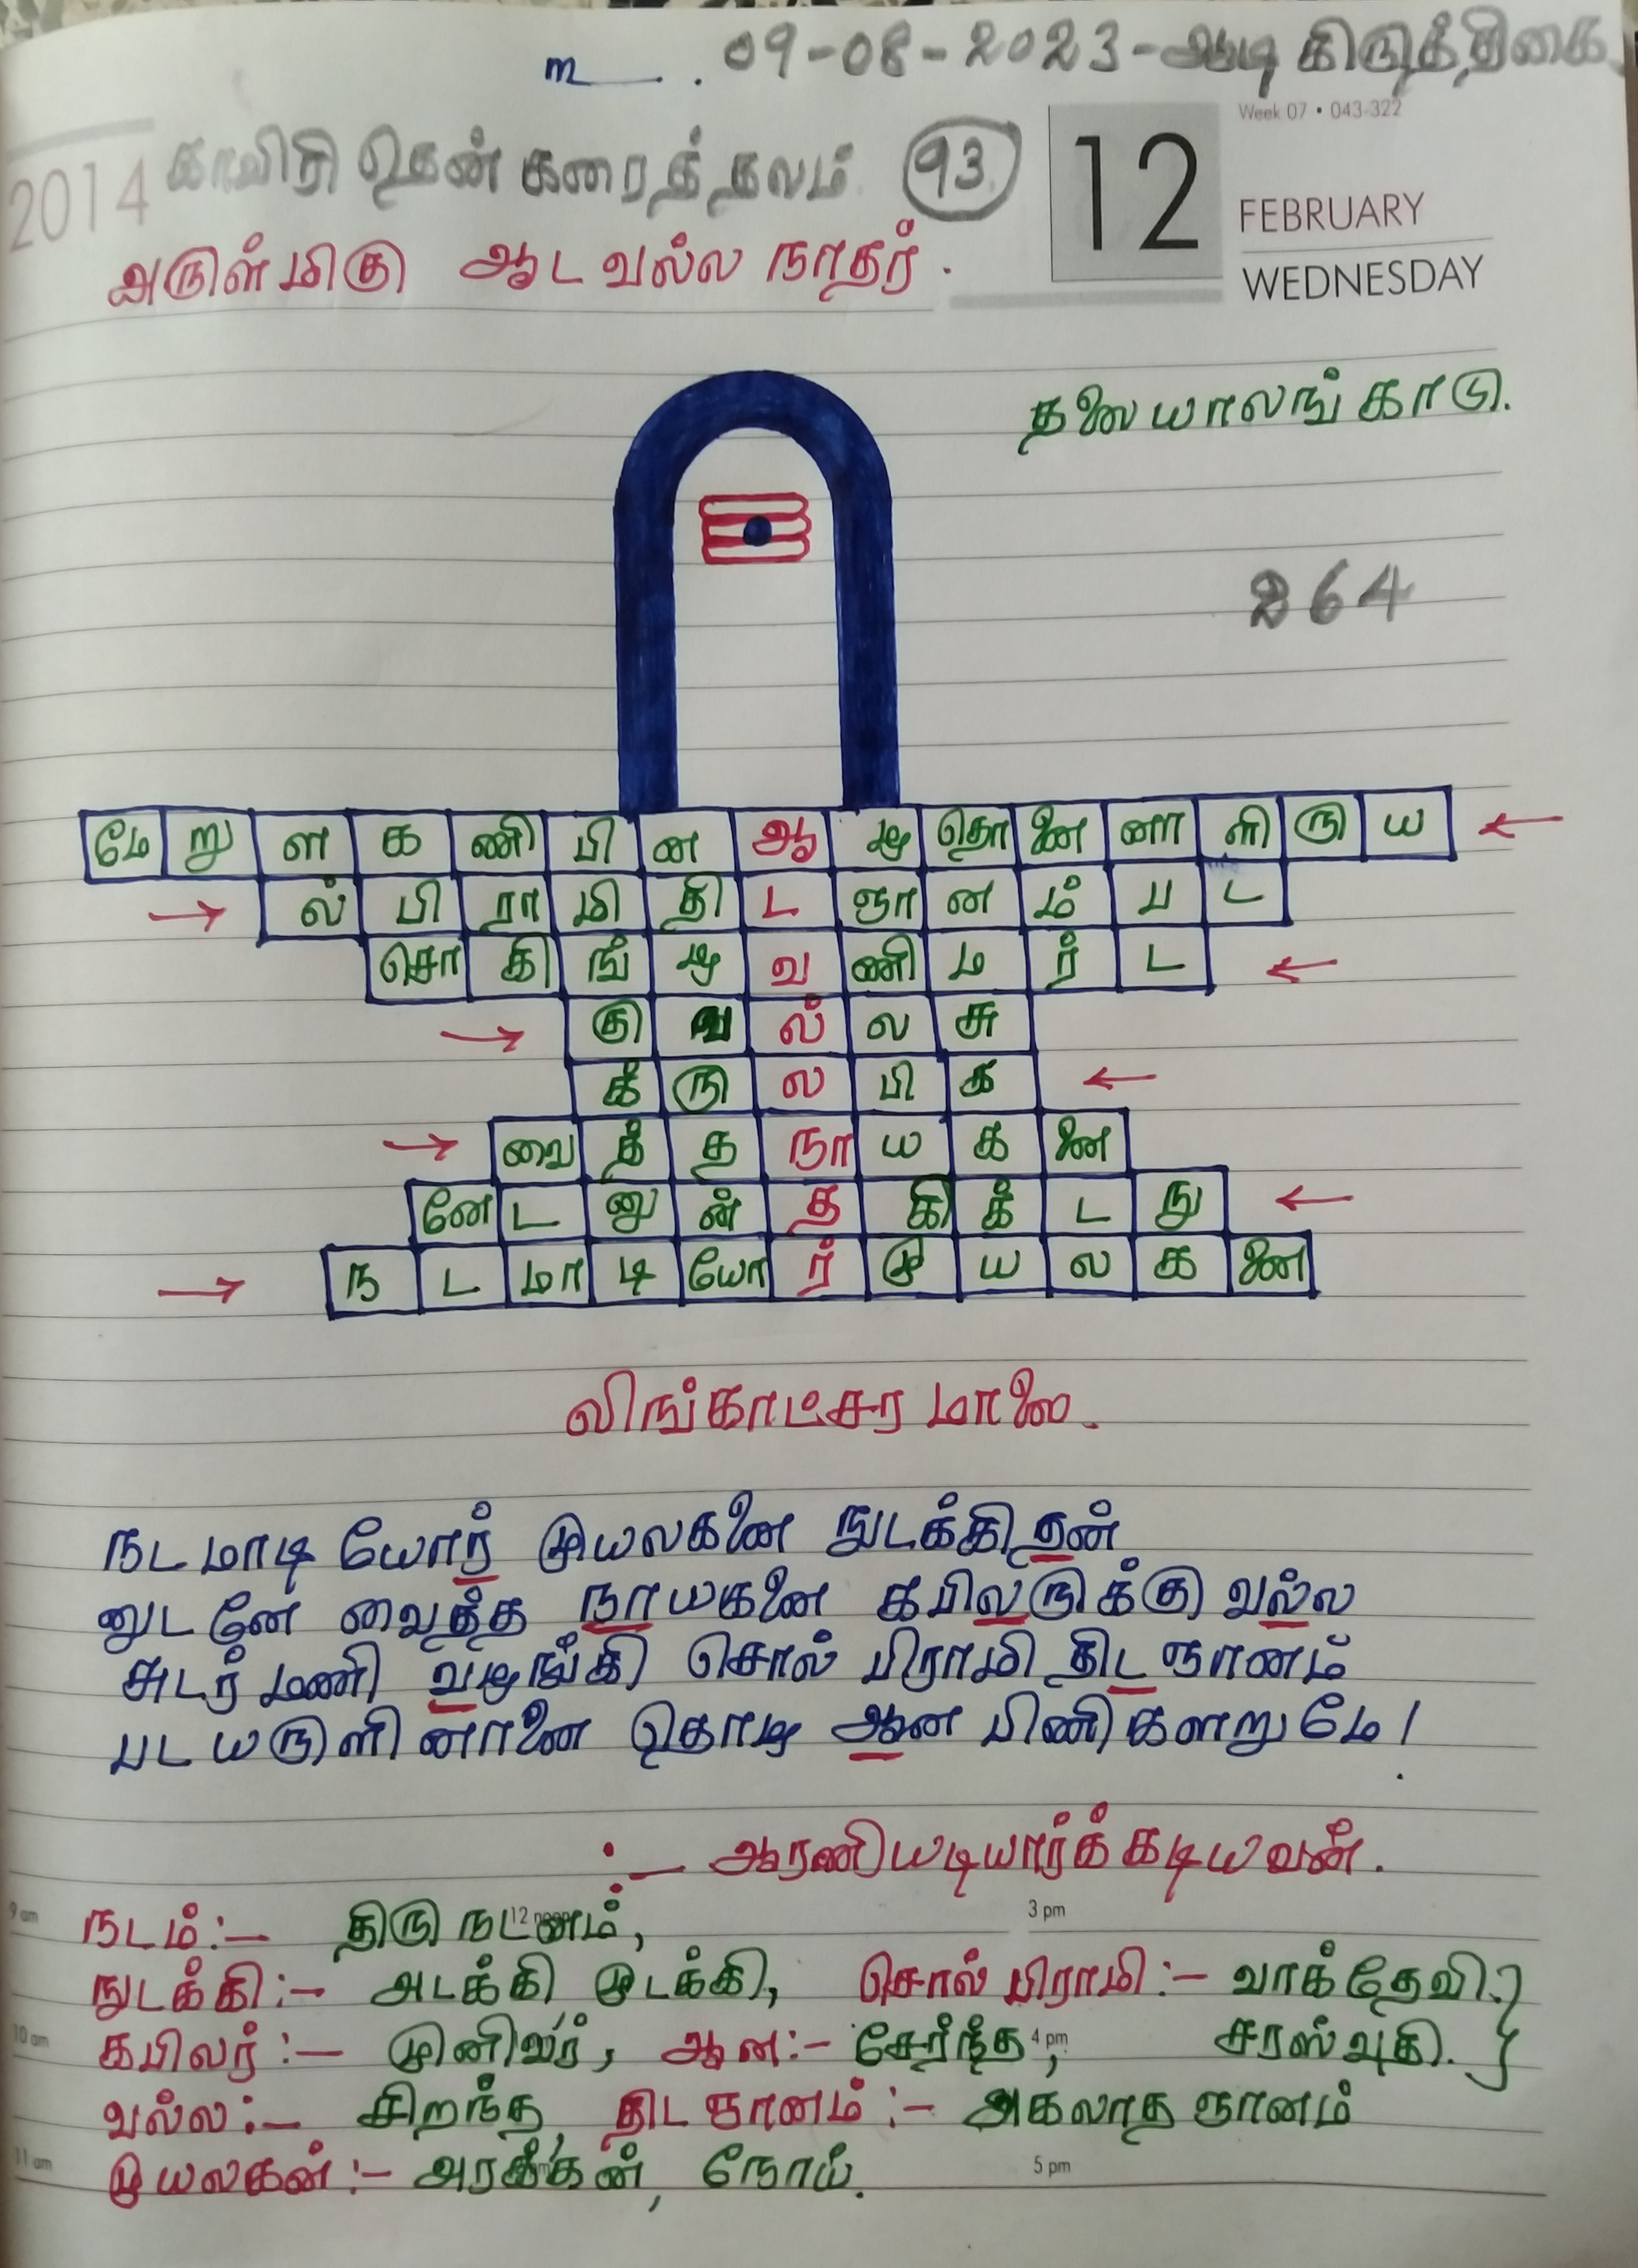 m . 09-08-2023-ஆடி கிருத்திகை
Week 07 • 043-322
2014 காவிரி தென் கரைத் தலம். 93. 12 FEBRUARY
அருள்மிகு ஆட வல்ல நாதர். WEDNESDAY
தலையாலங்காடு.
264
மே று ள க ணி பி ன ஆ ழ தொ னை னா ளி ரு ய ←
→ ல் பி ரா மி தி ட ஞா ன ம் ப ட
சொ கி ங் ழ வ ணி ம ர் ட ←
→ கு வ ல் ல சு
க் ரு ல பி க ←
→ வை த் த நா ய க னை
னே ட னு ன் த கி க் ட நு ←
→ ந ட மா டி யோ ர் மு ய ல க னை
லிங்காட்சர மாலை.
நடமாடி யோர் முயலகனை நுடக்கிதன்
னுடனே வைத்த நாயகனை கபிலருக்கு வல்ல
சுடர் மணி வழங்கி சொல் பிராமி திட ஞானம்
பட யருளினானை தொழ ஆன பிணிகளறுமே!
:— ஆரணியடியார்க்கடியவன்.
9 am நடம்:— திரு நடனம், 12 noon 3 pm
நுடக்கி:— அடக்கி முடக்கி, சொல் பிராமி:— வாக்தேவி. }
10 am கபிலர்:— முனிவர், ஆன:— சேர்ந்த, 4 pm சரஸ்வதி. }
வல்ல:— சிறந்த, திட ஞானம்:— அகலாத ஞானம்
11 am முயலகன்:— அரக்கன், நோய். 5 pm